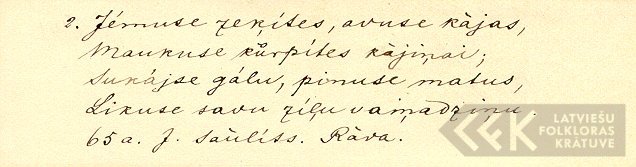 2. Jémuse zeķítes, avuse kājas,
Maukuse kůrpítes kàjiņai;
Sukájse gálu, pinuse matus,
Likuse savu zíļu vaiņadziņu.
65 a. J. Saulíts. Rāva.
LATVIEŠU
FOLKLORAS
KRĀTUVE